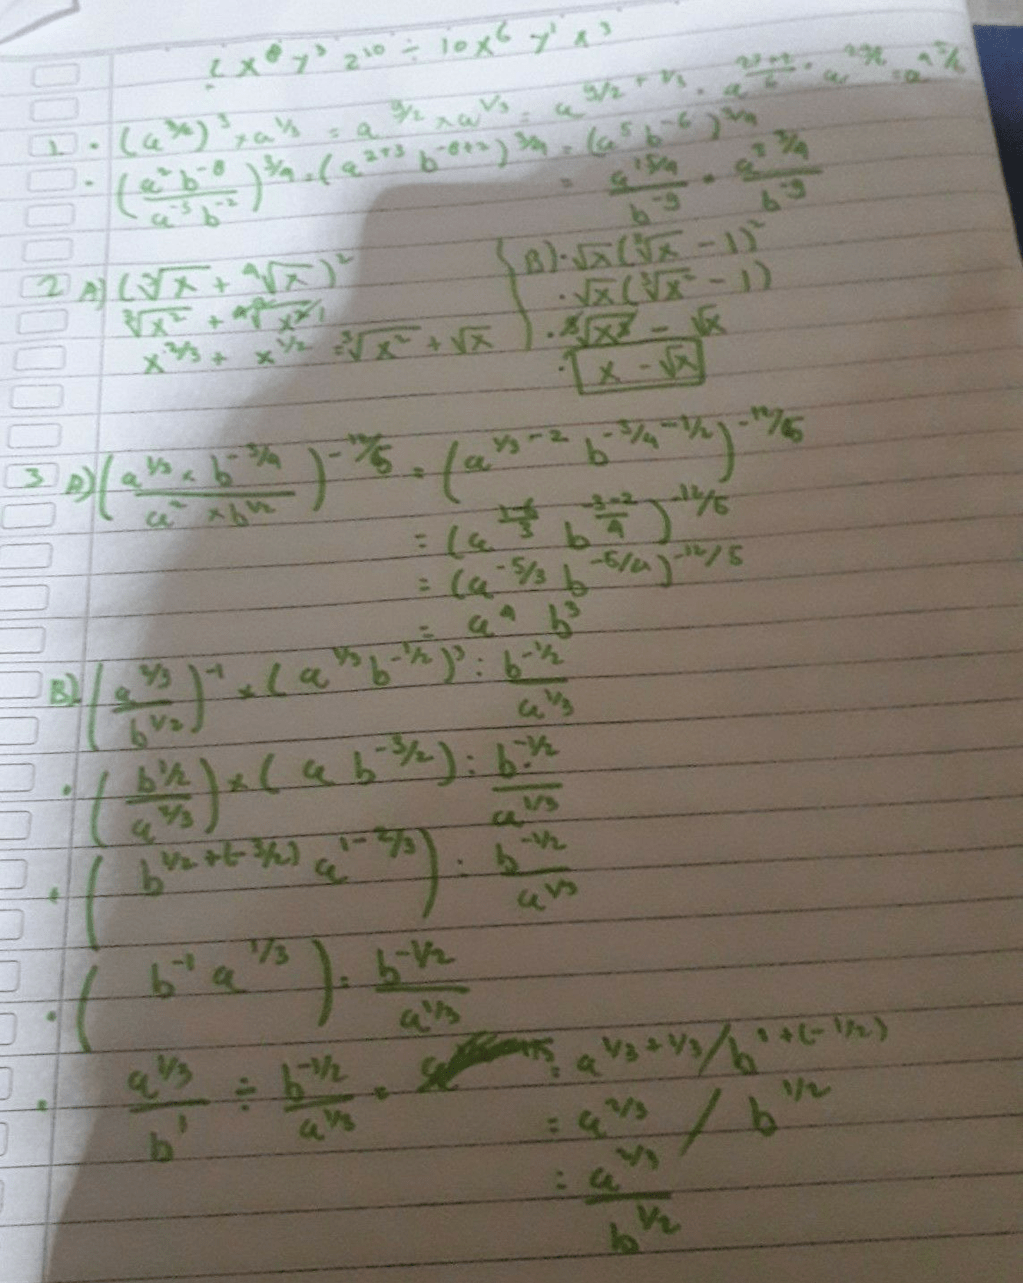 x⁸ y³ z¹⁰ ÷ 10x⁶ y¹ x³
1 • (a^3/2)³ × a^1/3 = a^9/2 × a^1/3 = a^9/2 + 1/3 = a^(27+2)/6 = a^29/6
• (a² b⁻⁸ / a⁻³ b⁻²)^3/4 = (a²⁺³ b⁻⁸⁺²)^3/4 = (a⁵ b⁻⁶)^3/4
= a^15/4 / b⁻⁹ = a^3 3/4 / b⁻⁹
2 A) (∛x + ⁴√x)²
∛x² +
x^2/3 + x^1/2 = ∛x² + √x
B) • √x (∛x − 1)²
• √x (∛x² − 1)
− √x
• x − √x
3 A) (a^1/3 × b^-3/4 / a² × b^1/2)^-12/5 = (a^1/3-2 b^-3/4-1/2)^-12/5
= (a^(1-6)/3 b^(-3-2)/4)^-12/5
= (a^-5/3 b^-5/4)^-12/5
= a⁴ b³
B) (a^2/3 / b^1/2)⁻¹ × (a^1/3 b^-1/2)³ : b^-1/2 / a^1/3
• (b^1/2 / a^2/3) × (a b^-3/2) : b^-1/2 / a^1/3
• (b^1/2+(-3/2) a^1-2/3) : b^-1/2 / a^1/3
• (b⁻¹ a^1/3) : b^-1/2 / a^1/3
• a^1/3 / b¹ ÷ b^-1/2 / a^1/3 = a^1/3+1/3 / b^1+(-1/2)
= a^2/3 / b^1/2
= a^2/3 / b^1/2